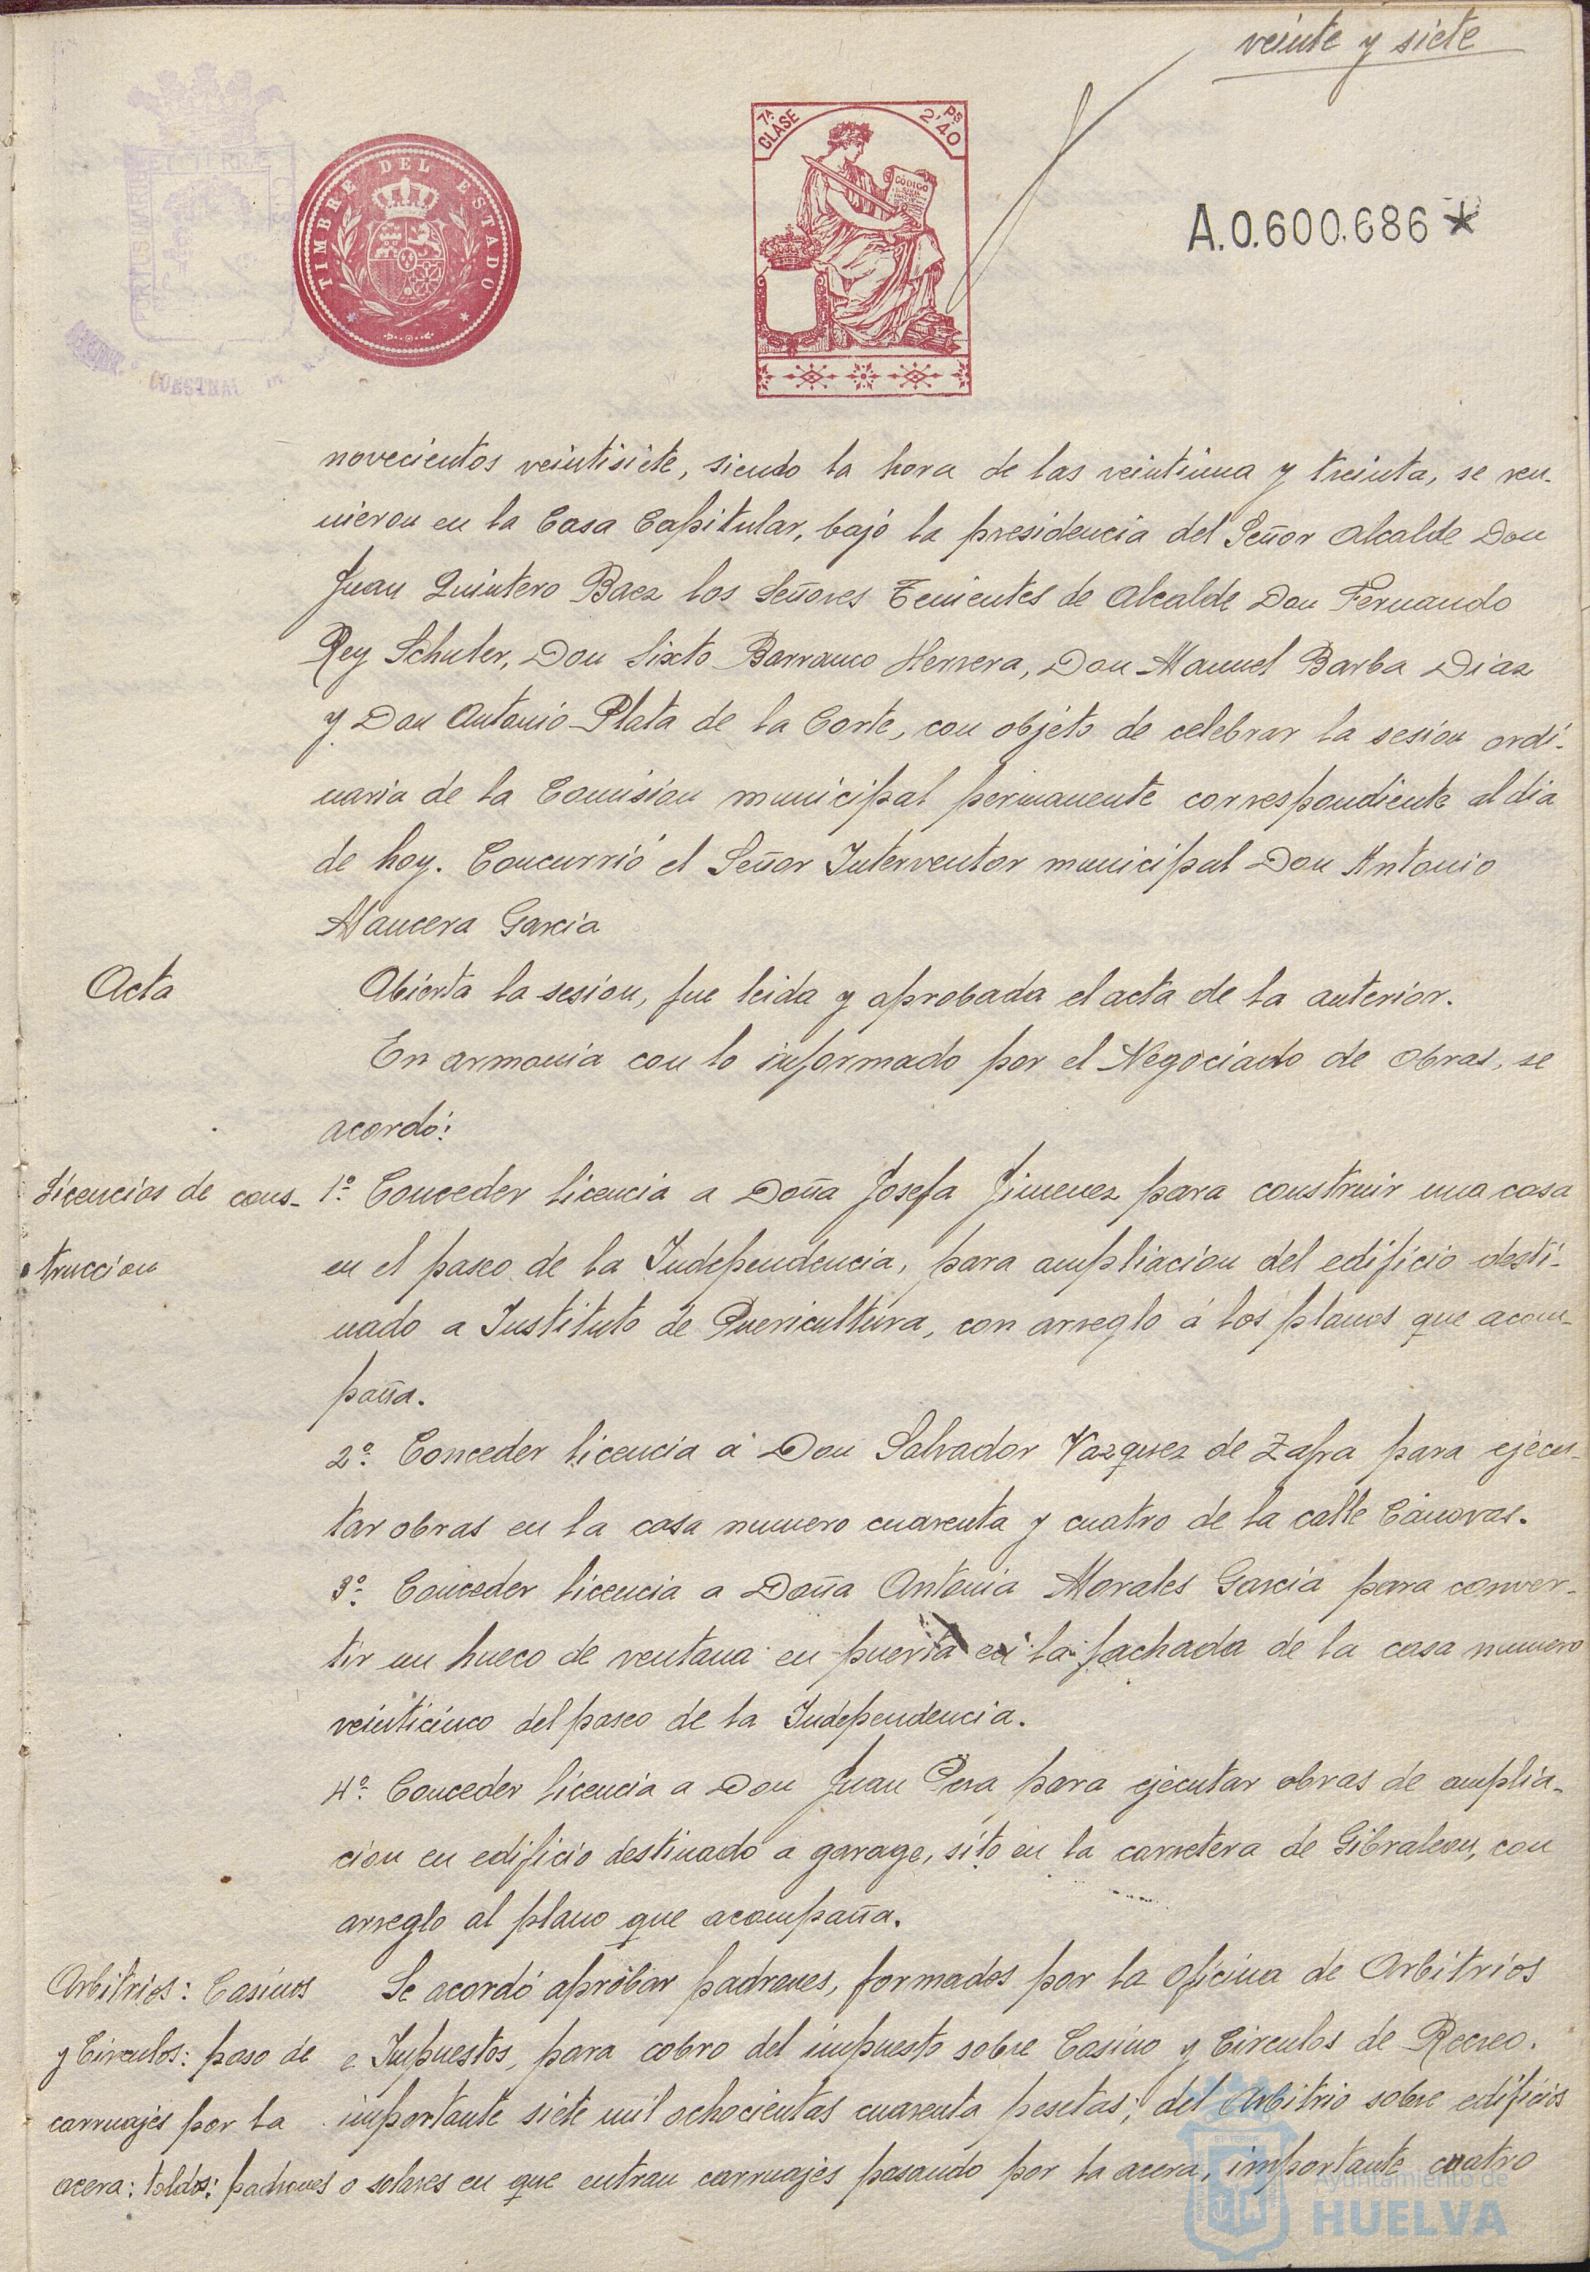 veinte y siete
TIMBRE DEL ESTADO
7ª CLASE
Ps 2'40
CÓDIGO
A.0.600.686*
novecientos veintisiete, siendo la hora de las veintiuna y treinta, se reu-
nieron en la Casa Capitular, bajo la presidencia del Señor Alcalde Don
Juan Quintero Baez los Señores Tenientes de Alcalde Don Fernando
Rey Schuler, Don Sixto Barranco Herrera, Don Manuel Barba Diaz
y Don Antonio Plata de la Corte, con objeto de celebrar la sesion ordi-
naria de la Comision municipal permanente correspondiente al dia
de hoy. Concurrió el Señor Interventor municipal Don Antonio
Mancera Garcia
Acta
Abierta la sesion, fue leida y aprobada el acta de la anterior.
En armonia con lo informado por el Negociado de Obras, se
acordó:
Licencias de cons-
truccion
1º Conceder licencia a Doña Josefa Jimenez para construir una casa
en el paseo de la Independencia, para ampliacion del edificio desti-
nado a Instituto de Puericultura, con arreglo á los planos que acom-
paña.
2º Conceder licencia a Don Salvador Vazquez de Zafra para ejecu-
tar obras en la casa numero cuarenta y cuatro de la calle Cánovas.
3º Conceder licencia a Doña Antonia Morales Garcia para conver-
tir un hueco de ventana en puerta en la fachada de la casa numero
veinticinco del paseo de la Independencia.
4º Conceder licencia a Don Juan para ejecutar obras de amplia-
cion en edificio destinado a garage, sito en la carretera de Gibraleon, con
arreglo al plano que acompaña.
Arbitrios: Casinos
y Circulos: paso de
carruajes por la
acera: toldos: padrones
Se acordó aprobar padrones, formados por la oficina de Arbitrios
e Impuestos, para cobro del impuesto sobre Casino y Circulos de Recreo.
importante siete mil ochocientas cuarenta pesetas; del Arbitrio sobre edificios
o solares en que entran carruajes pasando por la acera, importante cuatro
Ayuntamiento de
HUELVA